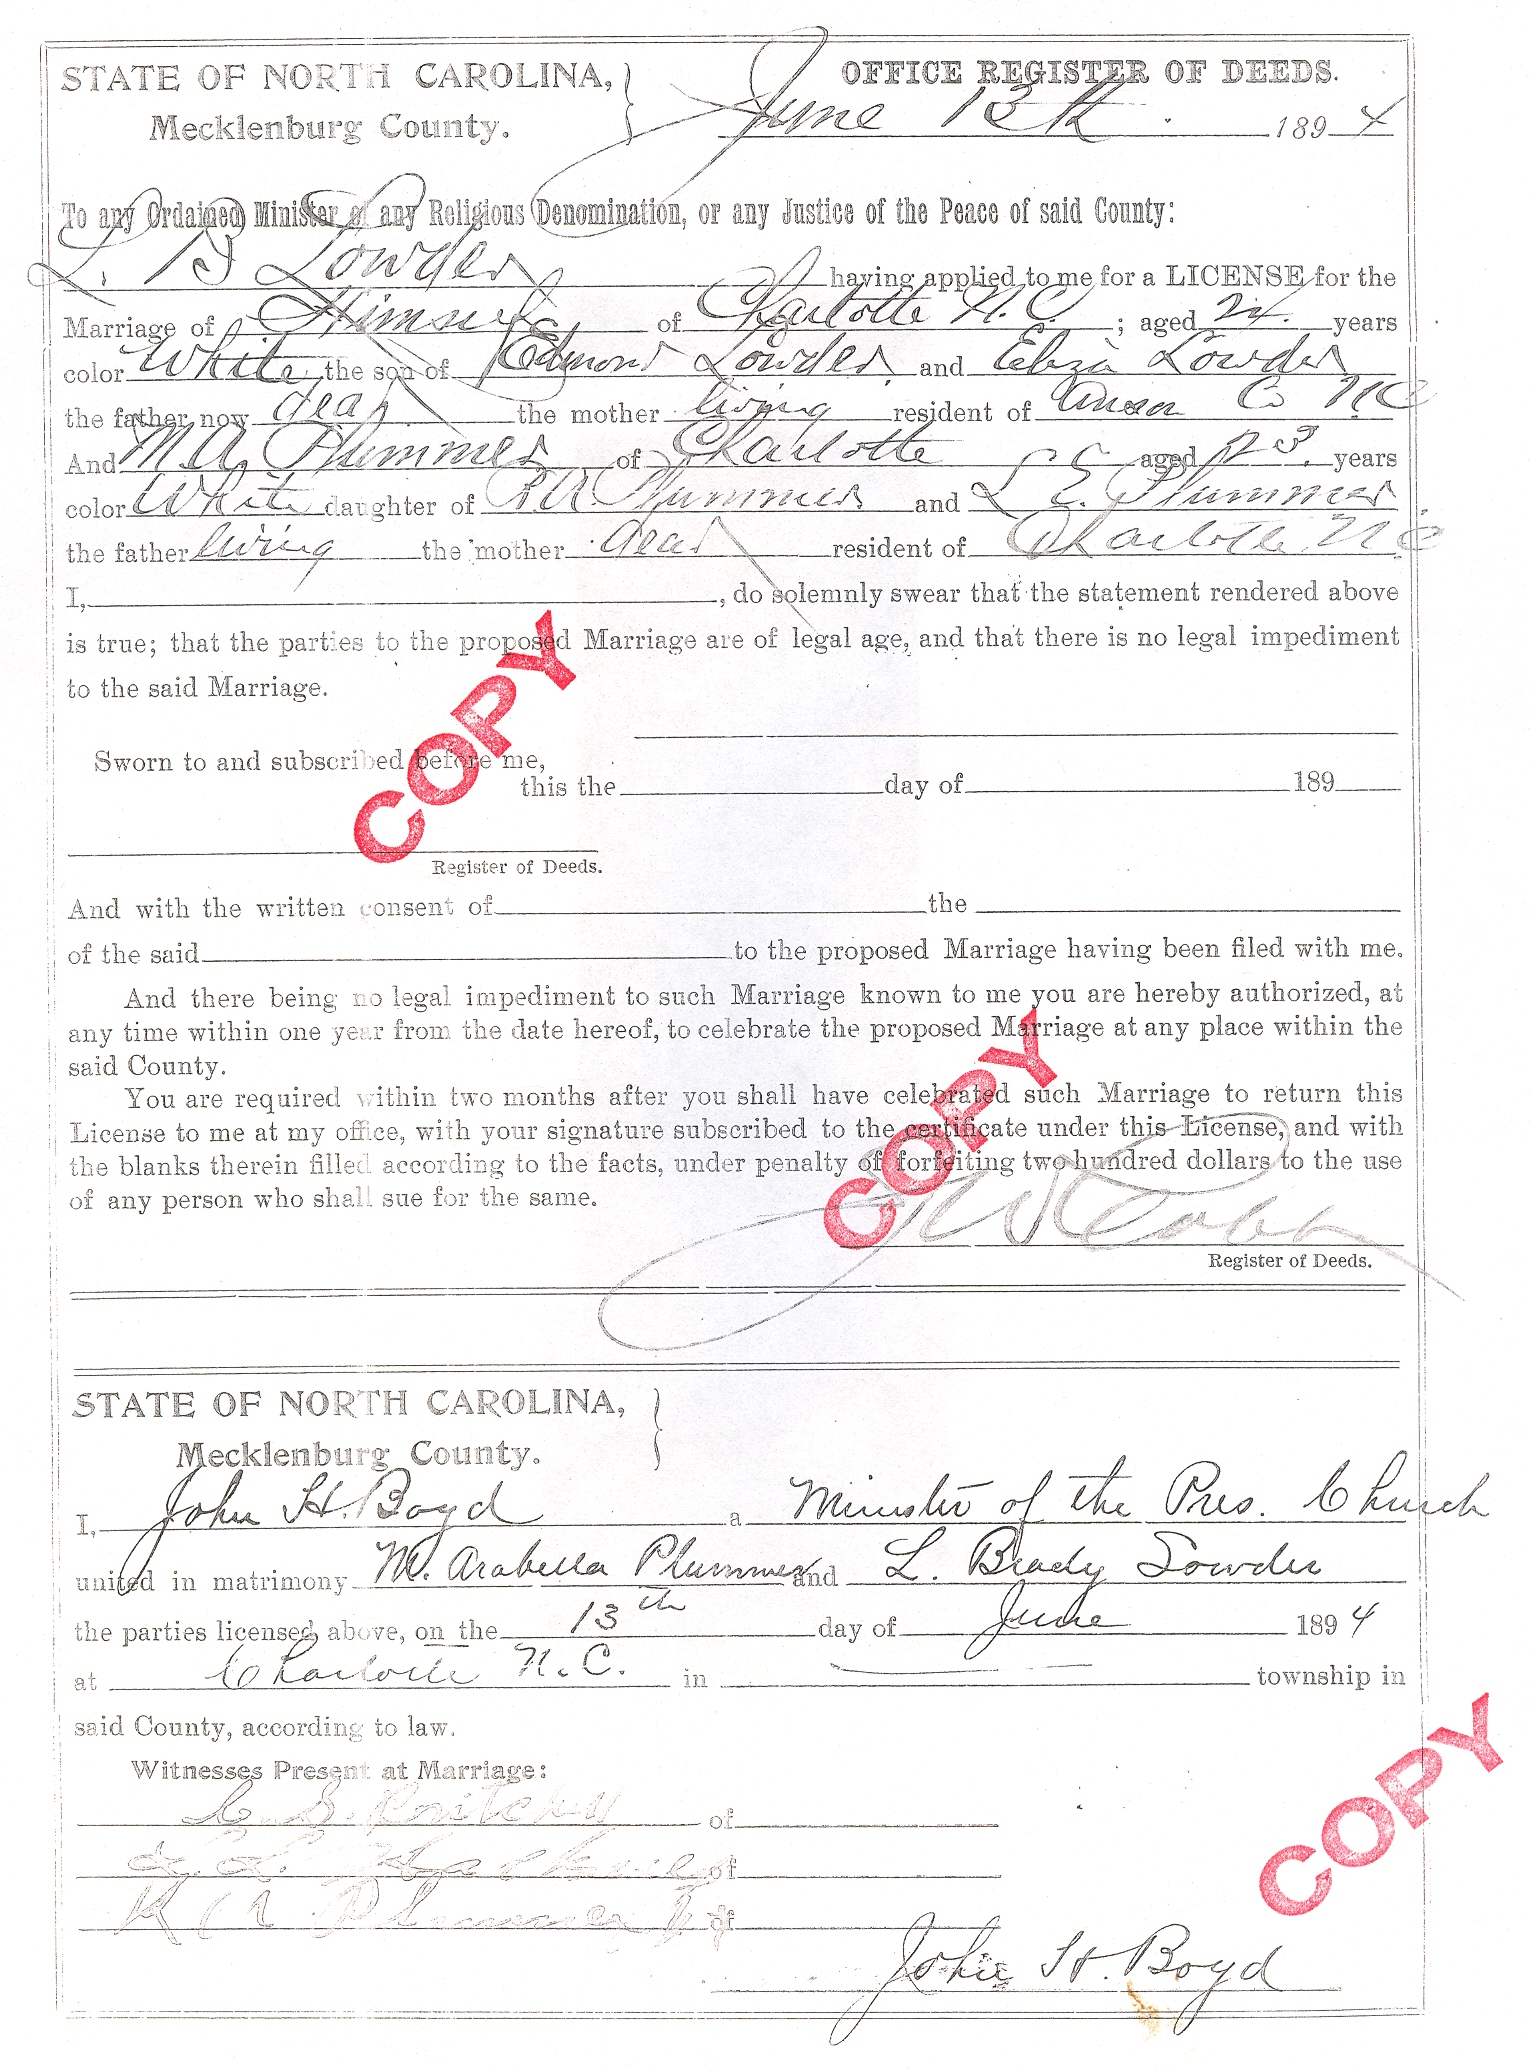 STATE OF NORTH CAROLINA, OFFICE REGISTER OF DEEDS.
Mecklenburg County. June 13th 1894
To any Ordained Minister of any Religious Denomination, or any Justice of the Peace of said County:
L. B Lowder having applied to me for a LICENSE for the
Marriage of Himself of Charlotte N. C. ; aged 24. years
color White the son of Edmond Lowder and Eliza Lowder
the father now dead the mother living resident of Anson Co NC
And M. A. Plummer of Charlotte aged 23. years
color White daughter of Plummer and L E. Plummer
the father living the mother dead resident of Charlotte N C
I, , do solemnly swear that the statement rendered above
is true; that the parties to the proposed Marriage are of legal age, and that there is no legal impediment
to the said Marriage.
COPY
Sworn to and subscribed before me,
this the day of 189
Register of Deeds.
And with the written consent of the
of the said to the proposed Marriage having been filed with me.
And there being no legal impediment to such Marriage known to me you are hereby authorized, at
any time within one year from the date hereof, to celebrate the proposed Marriage at any place within the
said County.
You are required within two months after you shall have celebrated such Marriage to return this
License to me at my office, with your signature subscribed to the certificate under this License, and with
the blanks therein filled according to the facts, under penalty of forfeiting two hundred dollars to the use
of any person who shall sue for the same.
COPY
Cobb
Register of Deeds.
STATE OF NORTH CAROLINA,
Mecklenburg County.
I, John H. Boyd a Minister of the Pres. Church
united in matrimony M. Arabella Plummer and L. Brady Lowder
the parties licensed above, on the 13th day of June 1894
at Charlotte N. C. in township in
said County, according to law.
Witnesses Present at Marriage:
of
of
Plummer of
COPY
John H. Boyd